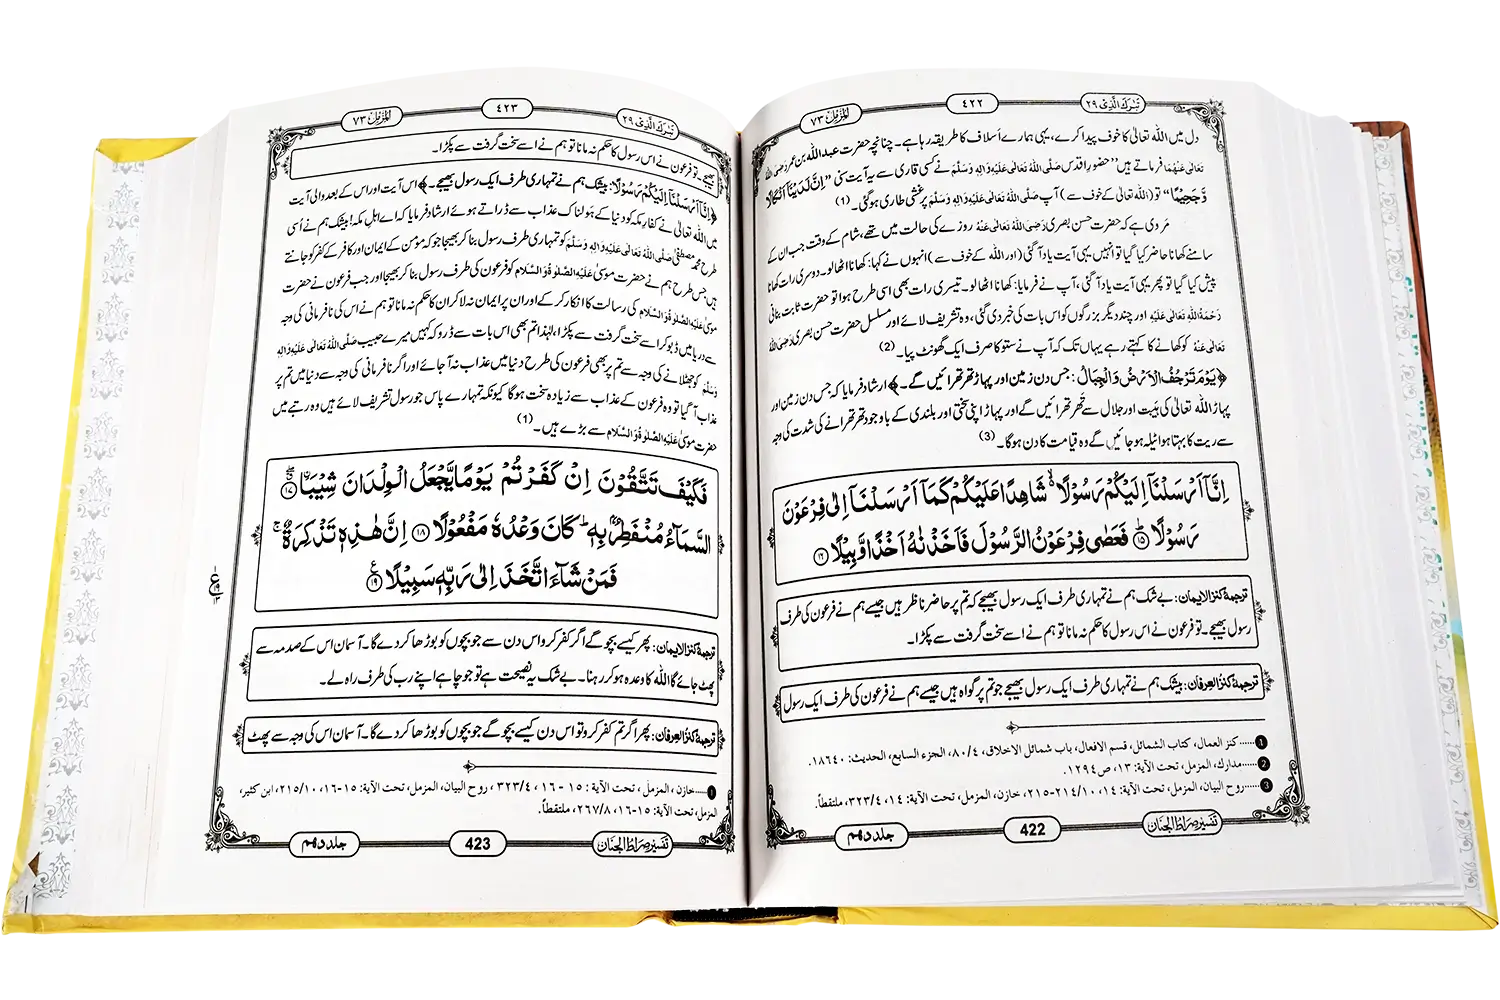 تَبٰرَكَ الَّذِیْ ٢٩
٤٢٢
المزمل ٧٣
دل میں اللّٰہ تعالیٰ کا خوف پیدا کرے، یہی ہمارے اَسلاف کا طریقہ رہا ہے۔ چنانچہ حضرت عبد اللّٰہ بن عمر رَضِیَ اللّٰہُ
تَعَالٰی عَنْہُمَا فرماتے ہیں’’ حضورِ اقدس صَلَّی اللّٰہُ تَعَالٰی عَلَیْہِ وَاٰلِہٖ وَسَلَّمَ نے کسی قاری سے یہ آیت سنی ’’اِنَّ لَدَیْنَاۤ اَنْكَالًا
وَّ جَحِیْمًا‘‘ تو (اللّٰہ تعالیٰ کے خوف سے) آپ صَلَّی اللّٰہُ تَعَالٰی عَلَیْہِ وَاٰلِہٖ وَسَلَّمَ پر غشی طاری ہو گئی۔ (1)
مَروی ہے کہ حضرت حسن بصری رَضِیَ اللّٰہُ تَعَالٰی عَنْہُ روزے کی حالت میں تھے، شام کے وقت جب ان کے
سامنے کھانا حاضر کیا گیا تو انہیں یہی آیت یاد آ گئی (اور اللّٰہ کے خوف سے) انہوں نے کہا: کھانا اٹھا لو۔ دوسری رات کھانا
پیش کیا گیا تو پھر یہی آیت یاد آ گئی، آپ نے فرمایا: کھانا اٹھا لو۔ تیسری رات بھی اسی طرح ہوا تو حضرت ثابت بنانی
رَحْمَۃُ اللّٰہِ تَعَالٰی عَلَیْہِ اور چند دیگر بزرگوں کو اس بات کی خبر دی گئی، وہ تشریف لائے اور مسلسل حضرت حسن بصری رَضِیَ اللّٰہُ
تَعَالٰی عَنْہُ کو کھانے کا کہتے رہے یہاں تک کہ آپ نے ستو کا صرف ایک گھونٹ پیا۔ (2)
﴿یَوْمَ تَرْجُفُ الْاَرْضُ وَ الْجِبَالُ: جس دن زمین اور پہاڑ تھرتھرائیں گے۔﴾ ارشاد فرمایا کہ جس دن زمین اور
پہاڑ اللّٰہ تعالیٰ کی ہَیبت اور جلال سے تھرتھرائیں گے اور پہاڑ اپنی سختی اور بلندی کے باوجود تھرتھرانے کی شدت کی وجہ
سے ریت کا بہتا ہوا ٹیلہ ہو جائیں گے وہ قیامت کا دن ہوگا۔ (3)
اِنَّاۤ اَرْسَلْنَاۤ اِلَیْكُمْ رَسُوْلًا ۙ۬ شَاهِدًا عَلَیْكُمْ كَمَاۤ اَرْسَلْنَاۤ اِلٰى فِرْعَوْنَ
رَسُوْلًا ؕ۝١٥ فَعَصٰى فِرْعَوْنُ الرَّسُوْلَ فَاَخَذْنٰهُ اَخْذًا وَّبِیْلًا ۝١٦
ترجمۂ کنزالایمان: بے شک ہم نے تمہاری طرف ایک رسول بھیجے کہ تم پر حاضر ناظر ہیں جیسے ہم نے فرعون کی طرف
رسول بھیجے۔ تو فرعون نے اس رسول کا حکم نہ مانا تو ہم نے اسے سخت گرفت سے پکڑا۔
ترجمۂ کنزُالعِرفان: بیشک ہم نے تمہاری طرف ایک رسول بھیجے جو تم پر گواہ ہیں جیسے ہم نے فرعون کی طرف ایک رسول
1.....كنز العمال، كتاب الشمائل، قسم الافعال، باب شمائل الاخلاق، ٤/٨٠، الجزء السابع، الحديث: ١٨٦٤٠.
2.....مدارك، المزمل، تحت الآية: ١٣، ص١٢٩٤.
3.....روح البيان، المزمل، تحت الآية: ١٤، ١٠/٢١٤-٢١٥، خازن، المزمل، تحت الآية: ١٤، ٤/٣٢٣، ملتقطاً.
تفسیر صراط الجنان
422
جلد دہم
تَبٰرَكَ الَّذِیْ ٢٩
٤٢٣
المزمل ٧٣
بھیجے۔ تو فرعون نے اس رسول کا حکم نہ مانا تو ہم نے اسے سخت گرفت سے پکڑا۔
﴿اِنَّاۤ اَرْسَلْنَاۤ اِلَیْكُمْ رَسُوْلًا: بیشک ہم نے تمہاری طرف ایک رسول بھیجے۔﴾ اس آیت اور اس کے بعد والی آیت
میں اللّٰہ تعالیٰ نے کفارِ مکہ کو دنیا کے ہَولناک عذاب سے ڈراتے ہوئے ارشاد فرمایا کہ اے اہلِ مکہ! بیشک ہم نے اُسی
طرح محمد مصطفیٰ صَلَّی اللّٰہُ تَعَالٰی عَلَیْہِ وَاٰلِہٖ وَسَلَّمَ کو تمہاری طرف رسول بنا کر بھیجا جو کہ مؤمن کے ایمان اور کافر کے کفر کو جانتے
ہیں جس طرح ہم نے حضرت موسیٰ عَلَیْہِ الصَّلٰوۃُ وَالسَّلَام کو فرعون کی طرف رسول بنا کر بھیجا اور جب فرعون نے حضرت
موسیٰ عَلَیْہِ الصَّلٰوۃُ وَالسَّلَام کی رسالت کا انکار کر کے اور ان پر ایمان نہ لا کر ان کا حکم نہ مانا تو ہم نے اس کی نافرمانی کی وجہ
سے دریا میں ڈبو کر اسے سخت گرفت سے پکڑا، لہٰذا تم بھی اس بات سے ڈرو کہ کہیں میرے حبیب صَلَّی اللّٰہُ تَعَالٰی عَلَیْہِ وَاٰلِہٖ
وَسَلَّمَ کو جھٹلانے کی وجہ سے تم پر بھی فرعون کی طرح دنیا میں عذاب نہ آ جائے اور اگر نافرمانی کی وجہ سے دنیا میں تم پر
عذاب آ گیا تو وہ فرعون کے عذاب سے زیادہ سخت ہوگا کیونکہ تمہارے پاس جو رسول تشریف لائے ہیں وہ رتبے میں
حضرت موسیٰ عَلَیْہِ الصَّلٰوۃُ وَالسَّلَام سے بڑے ہیں۔ (1)
فَكَیْفَ تَتَّقُوْنَ اِنْ كَفَرْتُمْ یَوْمًا یَّجْعَلُ الْوِلْدَانَ شِیْبَاۨ ۝١٧
السَّمَآءُ مُنْفَطِرٌۢ بِهٖؕ كَانَ وَعْدُهٗ مَفْعُوْلًا ۝١٨ اِنَّ هٰذِهٖ تَذْكِرَةٌ ۚ
فَمَنْ شَآءَ اتَّخَذَ اِلٰى رَبِّهٖ سَبِیْلًا ۝١٩
ترجمۂ کنزالایمان: پھر کیسے بچو گے اگر کفر کرو اس دن سے جو بچوں کو بوڑھا کر دے گا۔ آسمان اس کے صدمہ سے
پھٹ جائے گا اللّٰہ کا وعدہ ہو کر رہنا۔ بے شک یہ نصیحت ہے تو جو چاہے اپنے رب کی طرف راہ لے۔
ترجمۂ کنزُالعِرفان: پھر اگر تم کفر کرو تو اس دن کیسے بچو گے جو بچوں کو بوڑھا کر دے گا۔ آسمان اس کی وجہ سے پھٹ
1.....خازن، المزمل، تحت الآية: ١٥-١٦، ٤/٣٢٣، روح البيان، المزمل، تحت الآية: ١٥-١٦، ١٠/٢١٥، ابن كثير،
المزمل، تحت الآية: ١٥-١٦، ٨/٢٦٧، ملتقطاً.
تفسیر صراط الجنان
423
جلد دہم